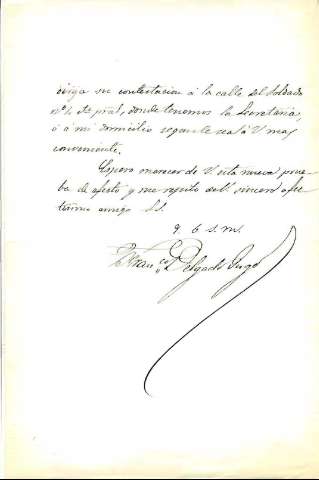 dirija su contestacion á la calle del Soldado
nº 1, dº pral, donde tenemos la Secretaría,
ó á mi domicilio segun le sea á V mas
conveniente.
Espero merecer de V esta nueva prue-
ba de afecto y me repito de V. sincero afec-
tísimo amigo S.S.
q. b. s. m.
Franco Delgado Jugo